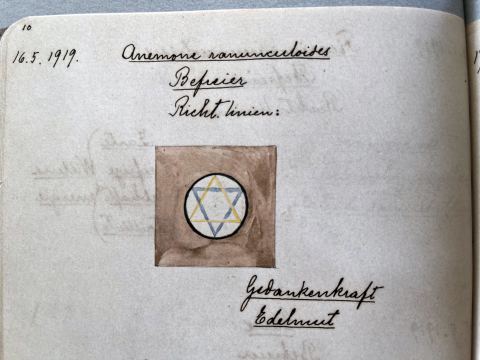 10
16.5.1919.
Anemone ranunculoides
Befreier
Richt.linien:
Gedankenkraft
Edelmut